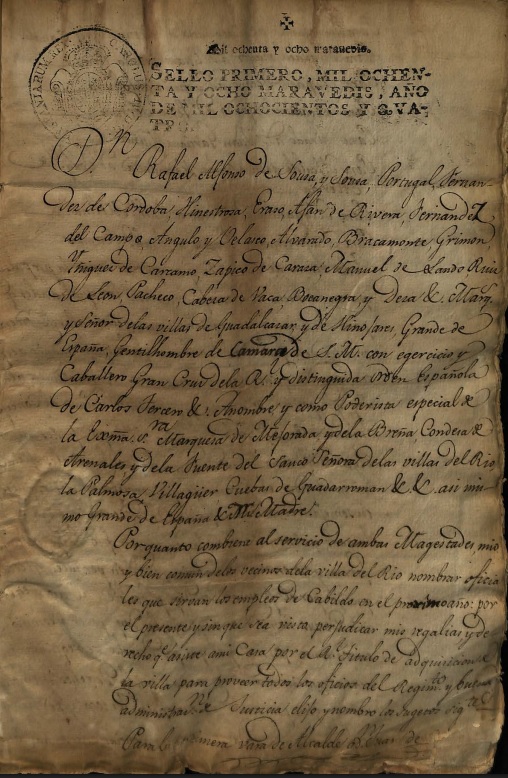 Mil ochenta y ocho maravedis.
SELLO PRIMERO, MIL OCHEN-
TA Y OCHO MARAVEDIS, AÑO
DE MIL OCHOCIENTOS Y QVA-
TRO.
D.n Rafael Alfonso de Sousa, y Sousa, Portugal, Fernan-
dez de Cordoba, Hinestrosa, Eraso, Afán de Rivera, Fernandez
del Campo, Angulo y Velasco, Alvarado, Bracamonte, Grimon
Yñiguez de Carcamo, Zapico de Caraca, Manuel de Lando Ruiz
de Leon, Pacheco, Cabeza de Vaca, Bocanegra, y Deza &. Marq.
y Señor de las villas de Guadalcazar, y de Hinojares, Grande de
España, Gentilhombre de Camara de S. M. con egercicio y
Caballero Gran Cruz de la R. y distinguida Orden Española
de Carlos Tercero &. A nombre, y como Poderista especial de
la Exma. S.ra Marquesa de Mejorada y de la Breña, Condesa de
Arenales y de la Fuente del Sauco Señora de las villas del Rio
la Palmosa, Villaguer Cuebas de Guadarroman &. &. asi mis-
mo Grande de España & Mi Madre.
Por quanto combiene al servicio de ambas Magestades mio
y bien comun de los vecinos de la villa del Rio nombrar oficia
les que sirvan los empleos de Cabildo en el proximo año: por
el presente y sin que sea visto perjudicar mis regalias y de
recho q.e asiste a mi Casa por el R. titulo de adquisicion de
la villa para proveer todos los oficios del Regim.to y buena
administrac.n de Justicia elijo y nombro los sugetos sig.tes
Para la primera vara de Alcalde de